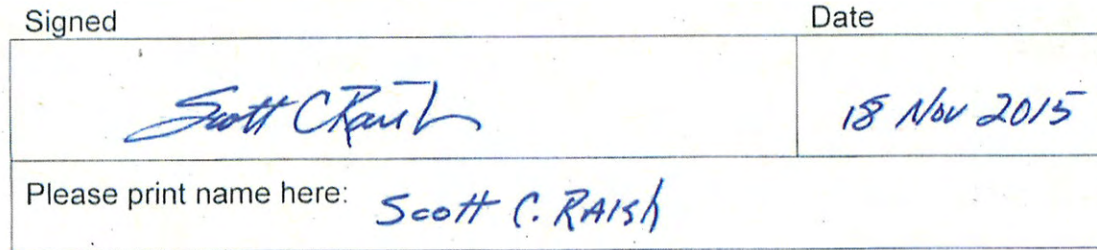 Signed Date
Scott C Raish 18 Nov 2015
Please print name here: Scott C. RAISH